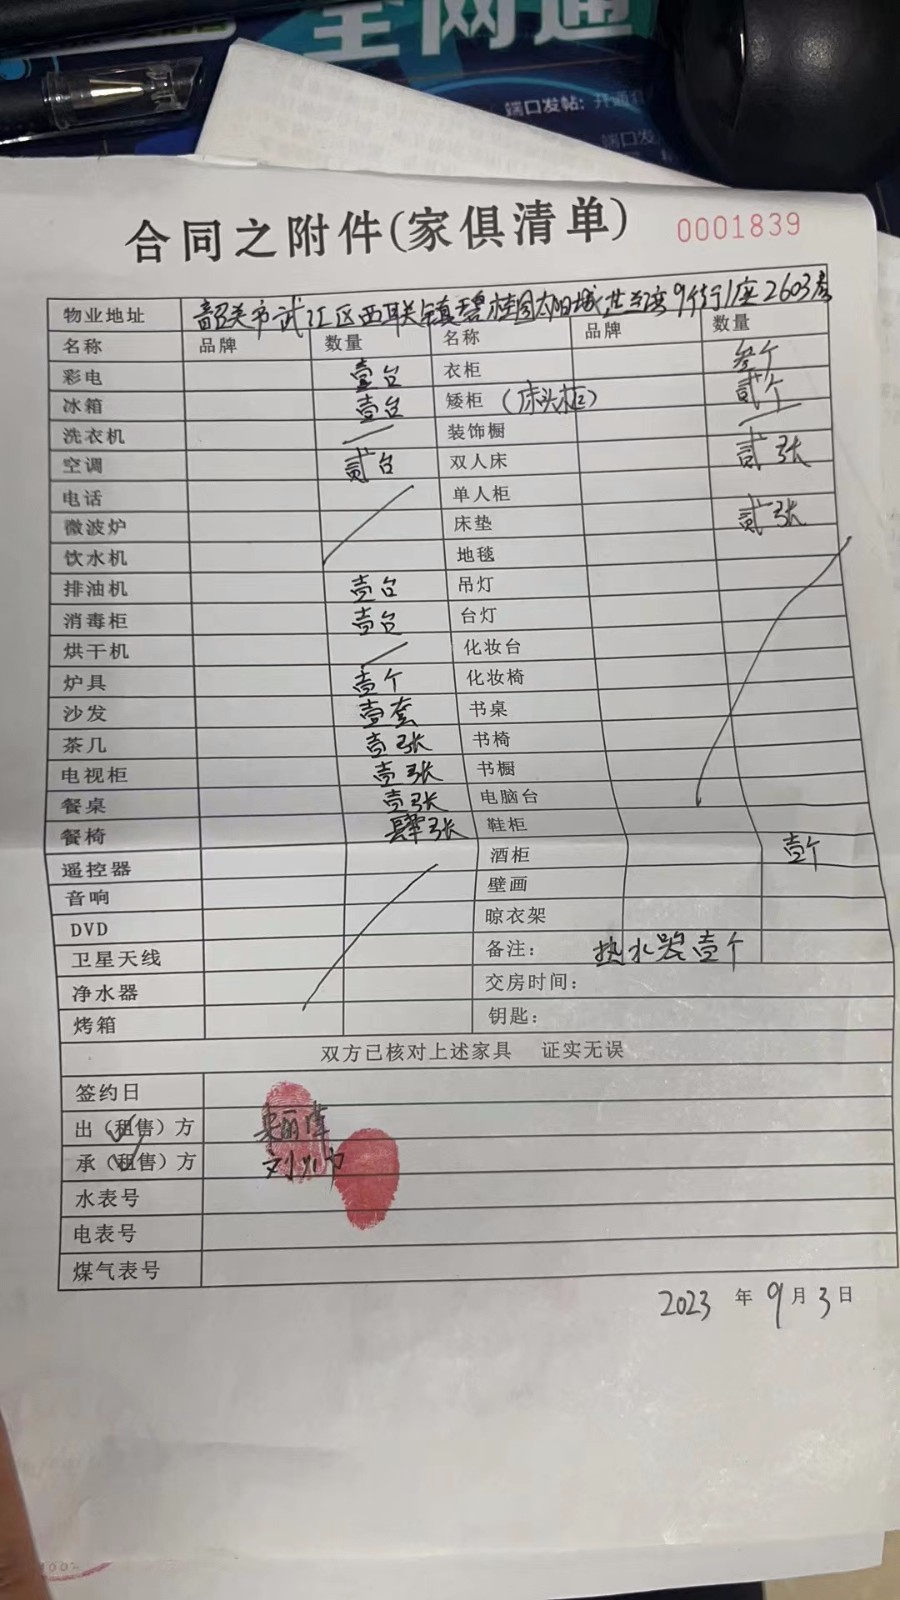 全网通
端口发帖：开通
端口发
合同之附件(家俱清单) 0001839
物业地址 韶关市武江区西联镇碧桂园太阳城 9街1座2603房
名称 品牌 数量 名称 品牌 数量
彩电 壹台 衣柜 叁个
冰箱 壹台 矮柜 (床头柜) 贰个
洗衣机 装饰橱
空调 贰台 双人床 贰张
电话 单人柜
微波炉 床垫 贰张
饮水机 地毯
排油机 壹台 吊灯
消毒柜 壹台 台灯
烘干机 化妆台
炉具 壹个 化妆椅
沙发 壹套 书桌
茶几 壹张 书椅
电视柜 壹张 书橱
餐桌 壹张 电脑台
餐椅 肆张 鞋柜
遥控器 酒柜 壹个
音响 壁画
DVD 晾衣架
卫星天线 备注: 热水器壹个
净水器 交房时间:
烤箱 钥匙:
双方已核对上述家具 证实无误
签约日
出（租售）方
承（租售）方
水表号
电表号
煤气表号
2023 年 9 月 3 日